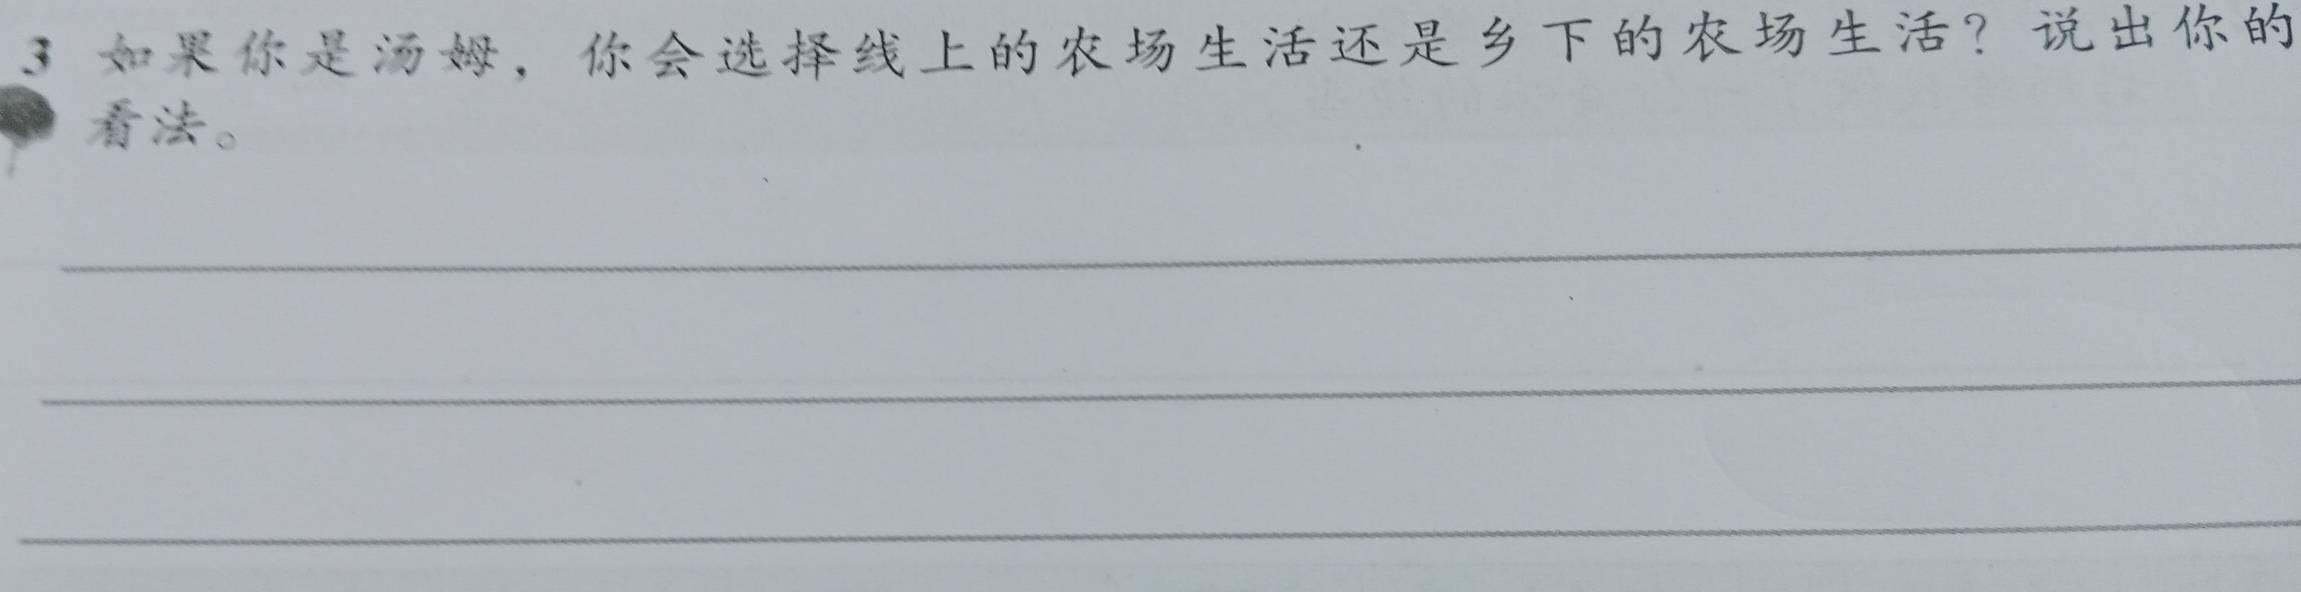 3 如果你是汤姆，你会选择线上的农场生活还是乡下的农场生活？说出你的
看法。